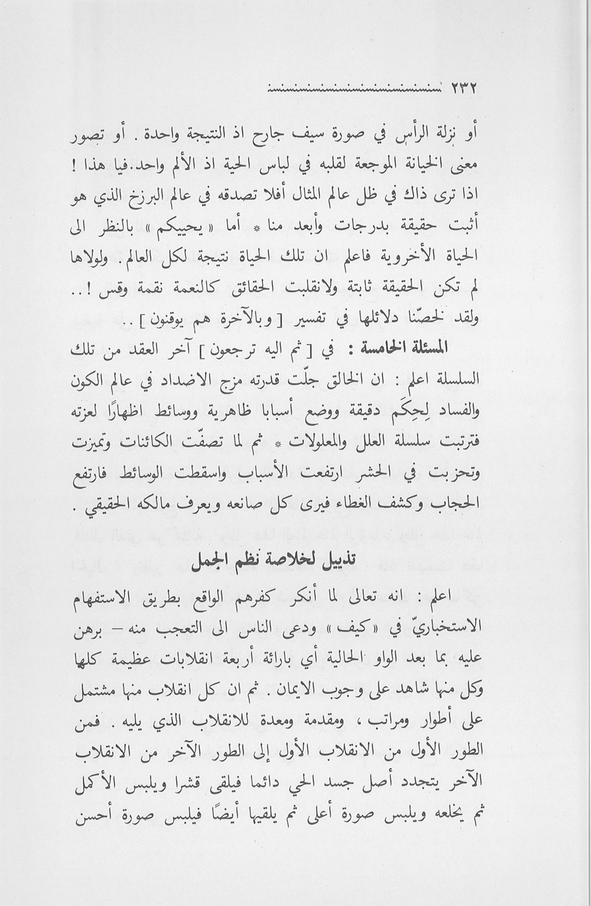 ٢٣٢
أو نزلة الرأس في صورة سيف جارح اذ النتيجة واحدة . أو تصور
معنى الخيانة الموجعة لقلبه في لباس الحية اذ الألم واحد.فيا هذا !
اذا ترى ذاك في ظل عالم المثال أفلا تصدقه في عالم البرزخ الذي هو
أثبت حقيقة بدرجات وأبعد منا * أما « يحييكم » بالنظر الى
الحياة الأخروية فاعلم ان تلك الحياة نتيجة لكل العالم . ولولاها
لم تكن الحقيقة ثابتة ولانقلبت الحقائق كالنعمة نقمة وقس !..
ولقد لخصّنا دلائلها في تفسير [ وبالآخرة هم يوقنون ] ..
المسئلة الخامسة : في [ ثم اليه ترجعون ] آخر العقد من تلك
السلسلة اعلم : ان الخالق جلّت قدرته مزج الاضداد في عالم الكون
والفساد لِحِكَم دقيقة ووضع أسبابا ظاهرية ووسائط اظهارًا لعزته
فترتبت سلسلة العلل والمعلولات * ثم لما تصفّت الكائنات وتميزت
وتحزبت في الحشر ارتفعت الأسباب واسقطت الوسائط فارتفع
الحجاب وكشف الغطاء فيرى كل صانعه ويعرف مالكه الحقيقي .
تذييل لخلاصة نظم الجمل
اعلم : انه تعالى لما أنكر كفرهم الواقع بطريق الاستفهام
الاستخباريّ في « كيف » ودعى الناس الى التعجب منه – برهن
عليه بما بعد الواو الحالية أي بارائة أربعة انقلابات عظيمة كلها
وكل منها شاهد على وجوب الايمان . ثم ان كل انقلاب منها مشتمل
على أطوار ومراتب ، ومقدمة ومعدة للانقلاب الذي يليه . فمن
الطور الأول من الانقلاب الأول إلى الطور الآخر من الانقلاب
الآخر يتجدد أصل جسد الحي دائما فيلقى قشرا ويلبس الأكمل
ثم يخلعه ويلبس صورة أعلى ثم يلقيها أيضًا فيلبس صورة أحسن